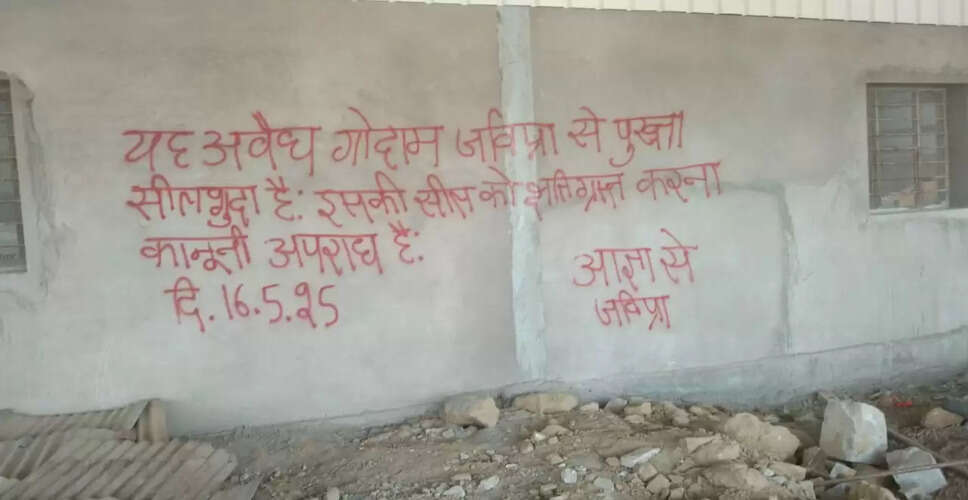 यह अवैध गोदाम जविप्रा से पुख्ता
सीलशुदा है: इसकी सील को क्षतिग्रस्त करना
कानूनी अपराध है:
दि. 16.5.25
आज्ञा से
जविप्रा